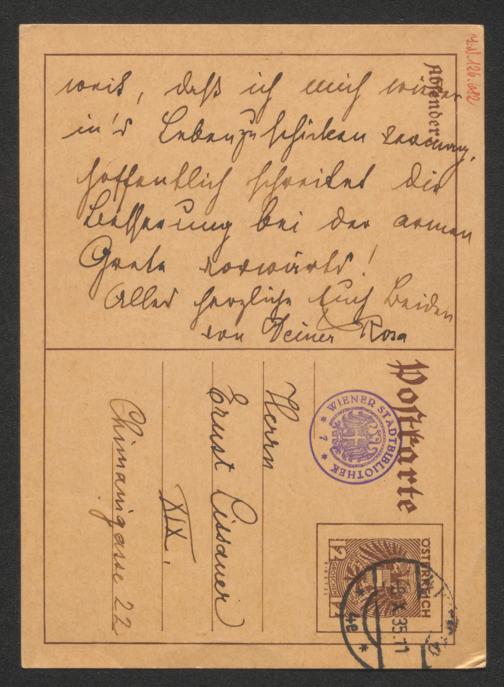 weiß, daß ich mich wieder
in's Leben zu schicken vermag,
hoffentlich schreitet die
Besserung bei der armen
Grete vorwärts!
Alles herzliche Euch Beiden
von Deiner Rosa
Absender:
Postkarte
WIENER STADTBIBLIOTHEK
7
ÖSTERREICH
X.35.11
4e
Herrn
Ernst Lissauer
XIX.
Chimanigasse 22